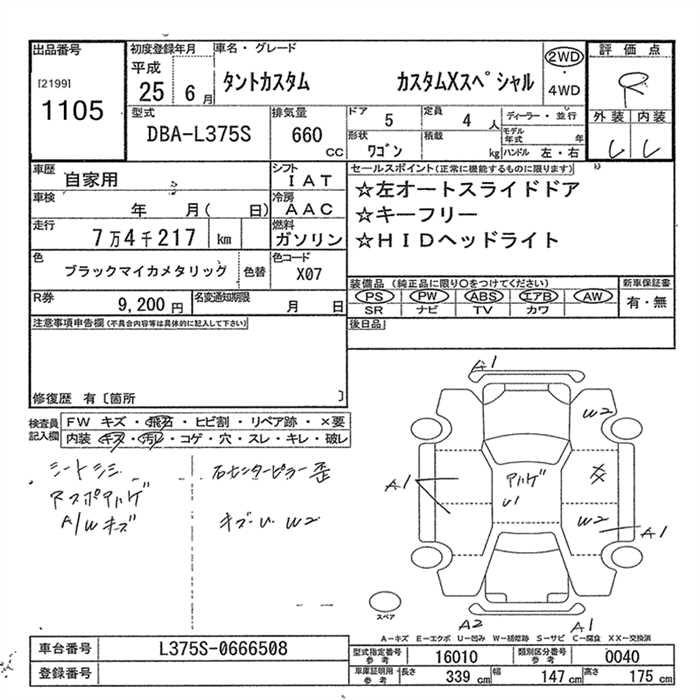 出品番号
[2199]
1105
初度登録年月
平成
25 6月
車名・グレード
タントカスタム カスタムXスペシャル
2WD
・
4WD
評価点
R
外装 内装
型式
DBA-L375S
排気量
660
CC
ドア
5
定員
4 人
ディーラー・並行
形状
ワゴン
積載
kg
モデル年式 年
ハンドル 左・右
車歴
自家用
シフト
IAT
車検
年 月( 日)
冷房
AAC
走行
7万4千217 km
燃料
ガソリン
色
ブラックマイカメタリッグ
色替
色コード
X07
R券
9,200円
名変通知期限
月 日
セールスポイント(正常に機能するものに限ります)
☆左オートスライドドア
☆キーフリー
☆HIDヘッドライト
装備品(純正品に限り○をつけてください)
PS PW ABS エアB AW
SR ナビ TV カワ
新車保証書
有・無
後日品
注意事項申告欄(不具合内容等は具体的に記入して下さい)
修復歴 有〔箇所 〕
検査員記入欄
FW キズ・飛石・ヒビ割・リペア跡・×要
内装・キズ・汚レ・コゲ・穴・スレ・キレ・破レ
シートシミ
A/Wキズ
右センターピラー歪
キズ・U W2
A1
W2
A1
アハゲ
U1
W2
A1
A2 A1
スペア
A-キズ E-エクボ U-凹み W-補修跡 S-サビ C-腐食 XX-交換済
車台番号
L375S-0666508
登録番号
型式指定番号
参考
16010
類別区分番号
参考
0040
車庫証明用
参考
長さ
339 cm
幅
147 cm
高さ
175 cm